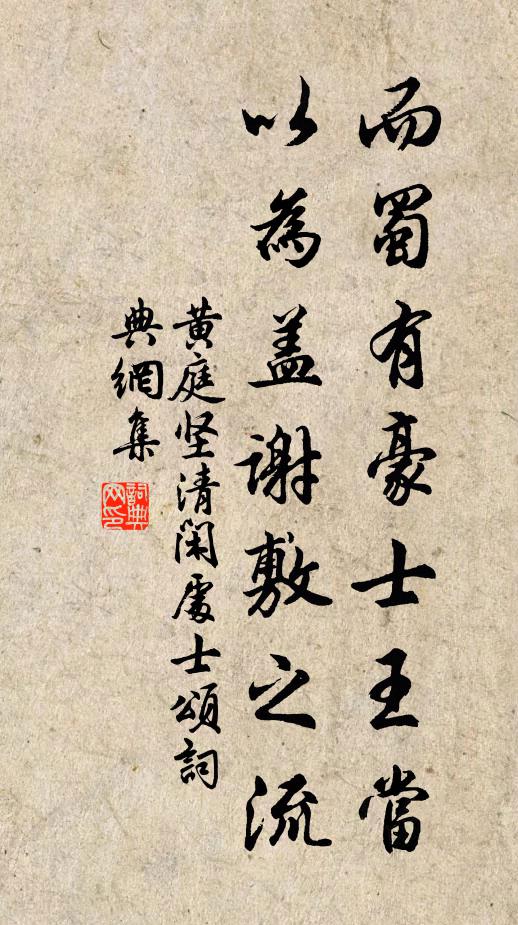 而蜀有豪士王當
以為盖謝敷之流
黄庭坚清閑處士頌詞
典網集
詞典
网印